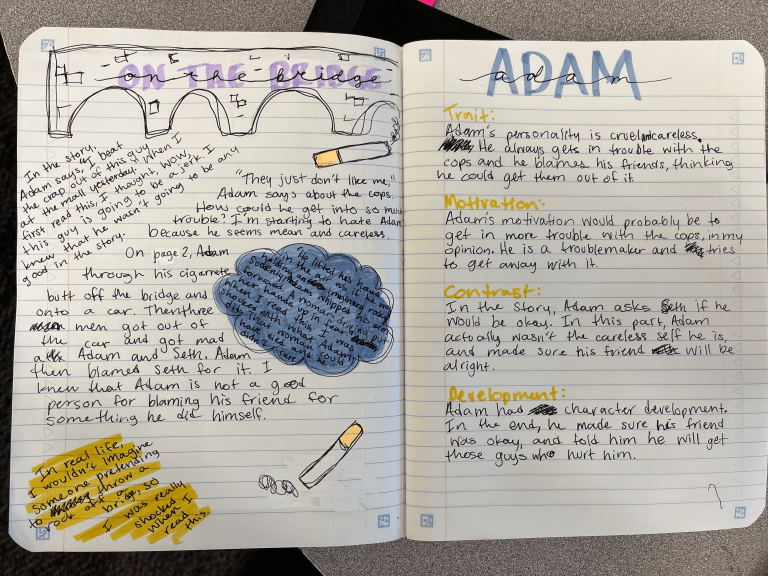 ON THE BRIDGE
on the bridge
In the story,
Adam says, "I beat
the crap out of this guy
at the mall yesterday. When I
first read this, I thought, wow,
this guy is going to be a jerk. I
knew that he wasn't going to be any
good in the story.
"They just don't like me,"
Adam says about the cops.
How could he get into so much
trouble? I'm starting to hate Adam
because he seems mean and careless.
On page 2, Adam
through his cigarrete
butt off the bridge and
onto a car. Then three
men got out of
the car and got mad
at Adam and Seth. Adam
then blamed Seth for it. I
knew that Adam is not a good
person for blaming his friend for
something he did himself.
"He lifted his hand
in the air as if he
suddenly whipped
forward
When I read this, I was
shocked
have died and he
didn't care.
In real life,
I wouldn't imagine
someone pretending
to throw a
rock off a
bridge, so
I was really
shocked
when I
read this.
ADAM
adam
Trait:
Adam's personality is cruel and careless.
He always gets in trouble with the
cops and he blames his friends, thinking
he could get them out of it.
Motivation:
Adam's motivation would probably be to
get in more trouble with the cops, in my
opinion. He is a troublemaker and tries
to get away with it.
Contrast:
In the story, Adam asks Seth if he
would be okay. In this part, Adam
actually wasn't the careless self he is,
and made sure his friend will be
alright.
Development:
Adam had character development.
In the end, he made sure his friend
was okay, and told him he will get
those guys who hurt him.